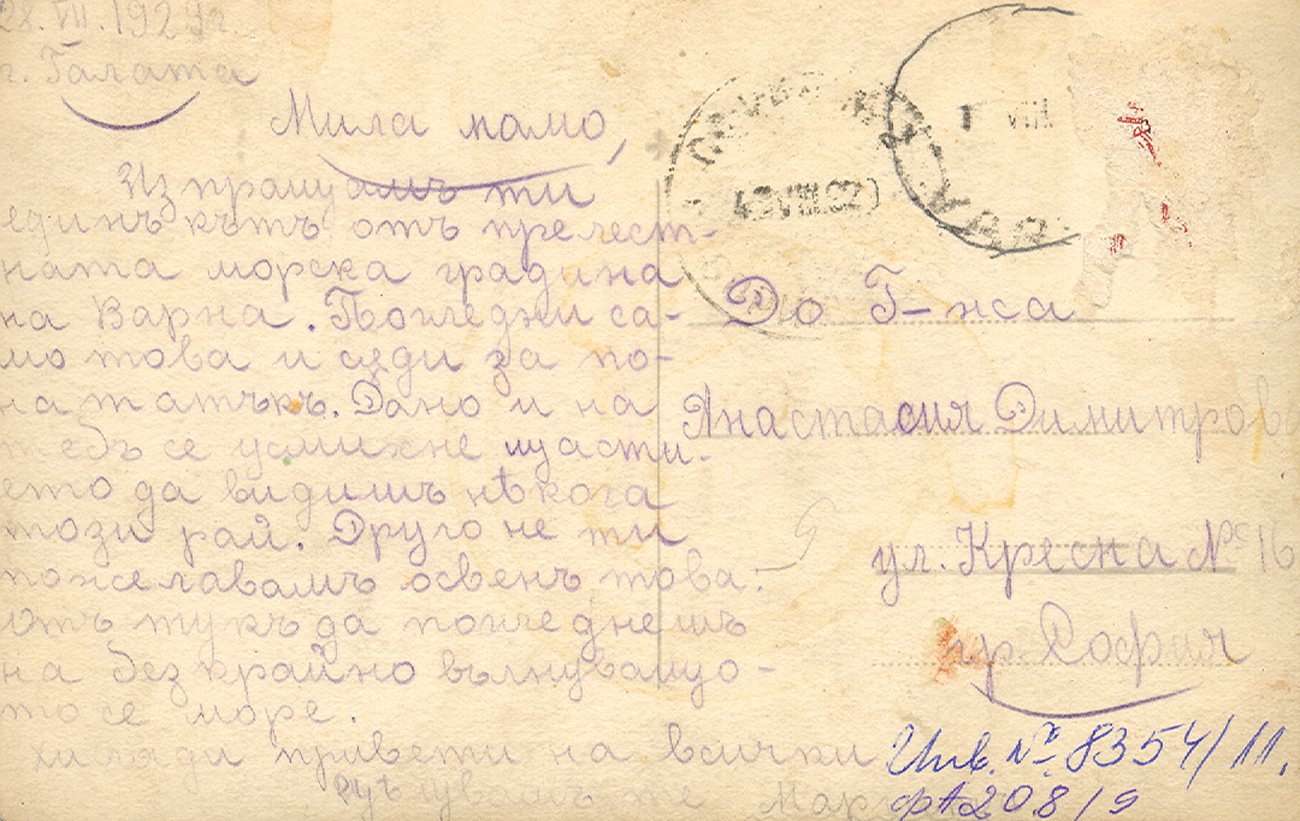 28.VII.1929г.
г. Галата
Мила мамо,
Изпращамъ ти
единъ кѫтъ отъ прелест-
ната морска градина
на Варна. Погледни са-
мо това и сѫди за по-
нататъкъ. Дано и на
тебъ се усмихне щасти-
ето да видишъ нѣкога
този рай. Друго не ти
пожелавамъ освенъ това:
отъ тукъ да погледнешъ
на безкрайно вълнуващо-
то се море.
хиляди привети на всички
До Г-жа
Анастасия Димитрова
ул. Кресна № 16
гр. София
Инв. № 8354/11.
фА208/9